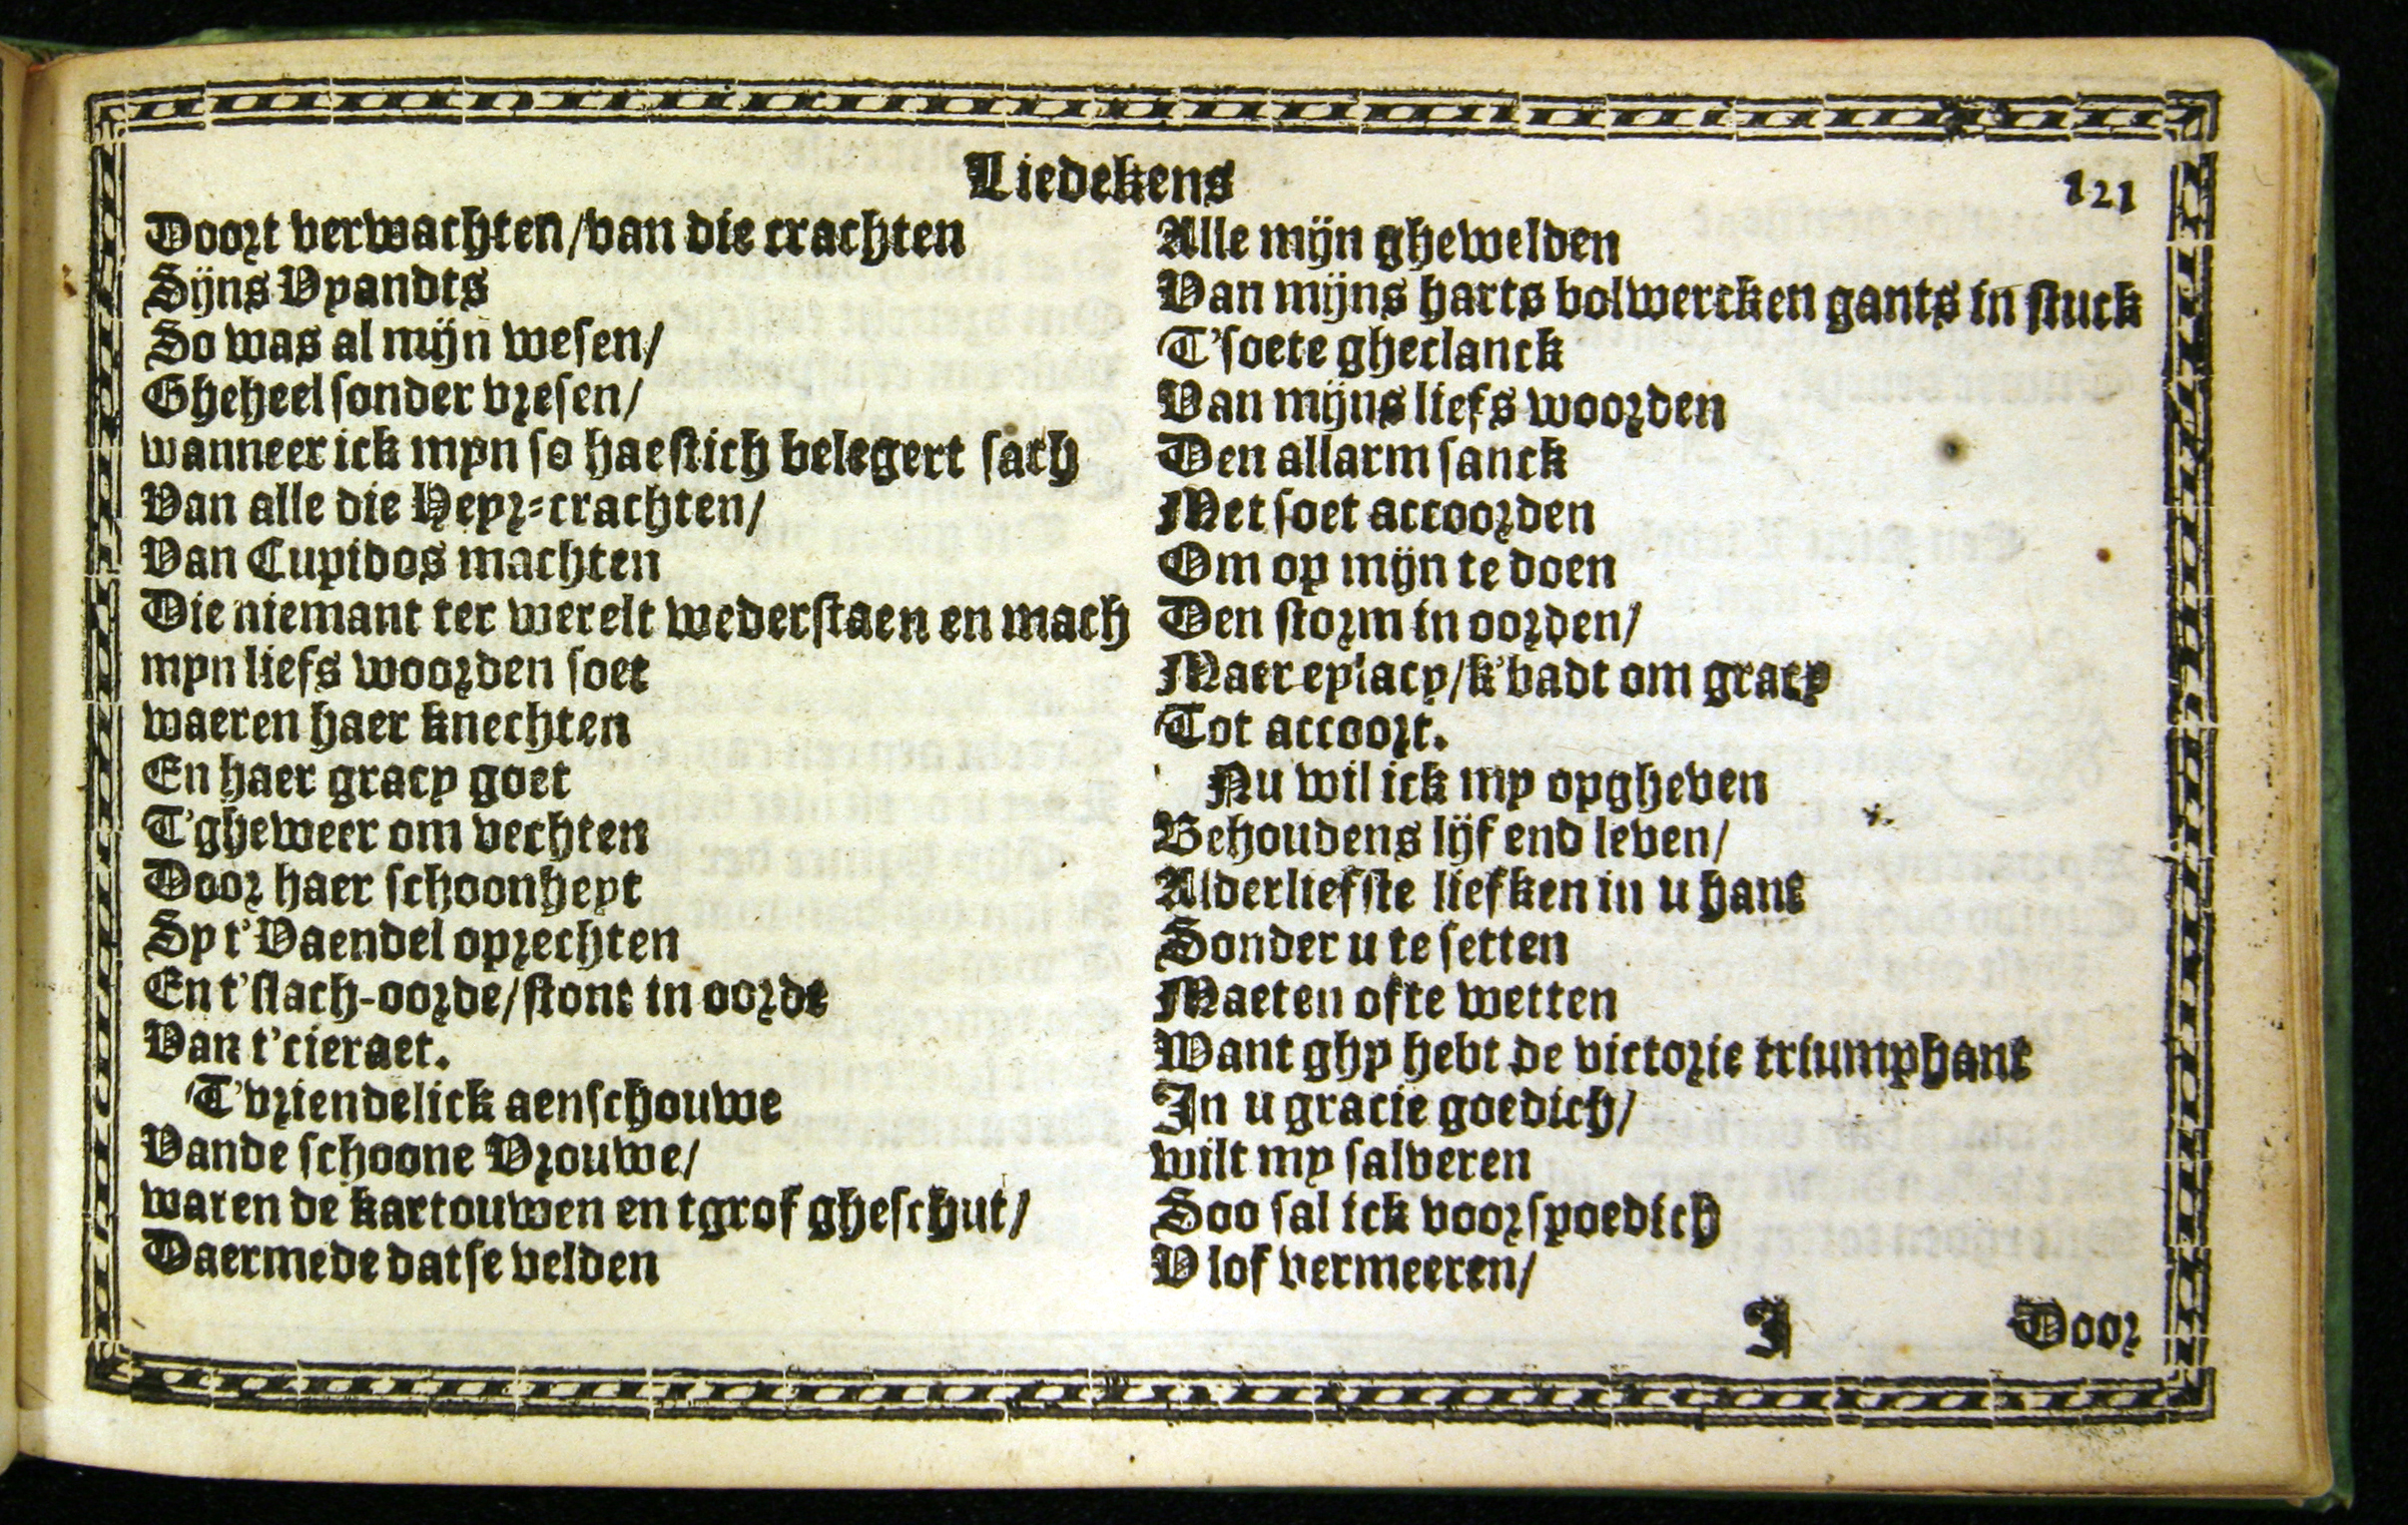 Liedekens
121
Doort verwachten/van die crachten
Sijns Vyandts
So was al mijn wesen/
Gheheel sonder vresen/
wanneer ick myn so haestich belegert sach
Van alle die Heyr-crachten/
Van Cupidos machten
Die niemant ter werelt wederstaen en mach
myn liefs woorden soet
waeren haer knechten
En haer gracy goet
T'gheweer om vechten
Door haer schoonheyt
Sy t'Vaendel oprechten
En t'slach-oorde/stont in oorde
Van t'cieraet.
T'vriendelick aenschouwe
Vande schoone Vrouwe/
waren de kartouwen en tgrof gheschut/
Daermede datse velden
Alle mijn ghewelden
Van mijns harts bolwercken gants in stuck
T'soete gheclanck
Van mijns liefs woorden
Den allarm sanck
Met soet accoorden
Om op mijn te doen
Den storm in oorden/
Maer eylacy/k'badt om gracy
Tot accoort.
Nu wil ick my opgheven
Behoudens lijf end leven/
Alderliefste liefken in u hant
Sonder u te setten
Maeten ofte wetten
Want ghy hebt de victorie triumphant
In u gracie goedich/
wilt my salveren
Soo sal ick voorspoedich
V lof vermeeren/
I
Door